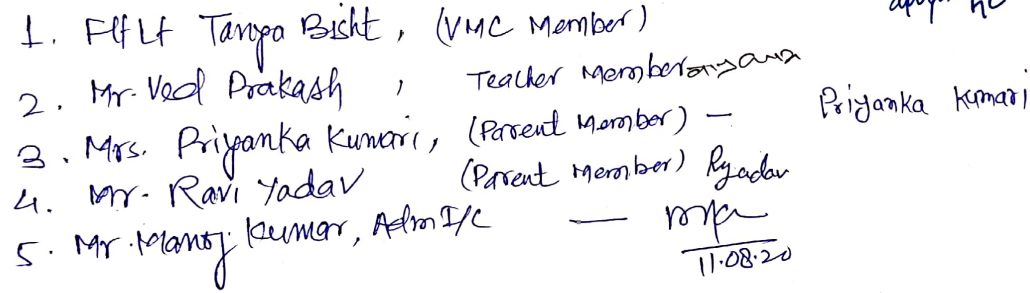 1. Flt Lt Tanya Bisht, (VMC Member)
2. Mr. Ved Prakash, Teacher Member
3. Mrs. Priyanka Kumari, (Parent Member) — Priyanka Kumari
4. Mr. Ravi Yadav (Parent Member) Ryadav
5. Mr. Manoj Kumar, Adm I/C —
11.08.20